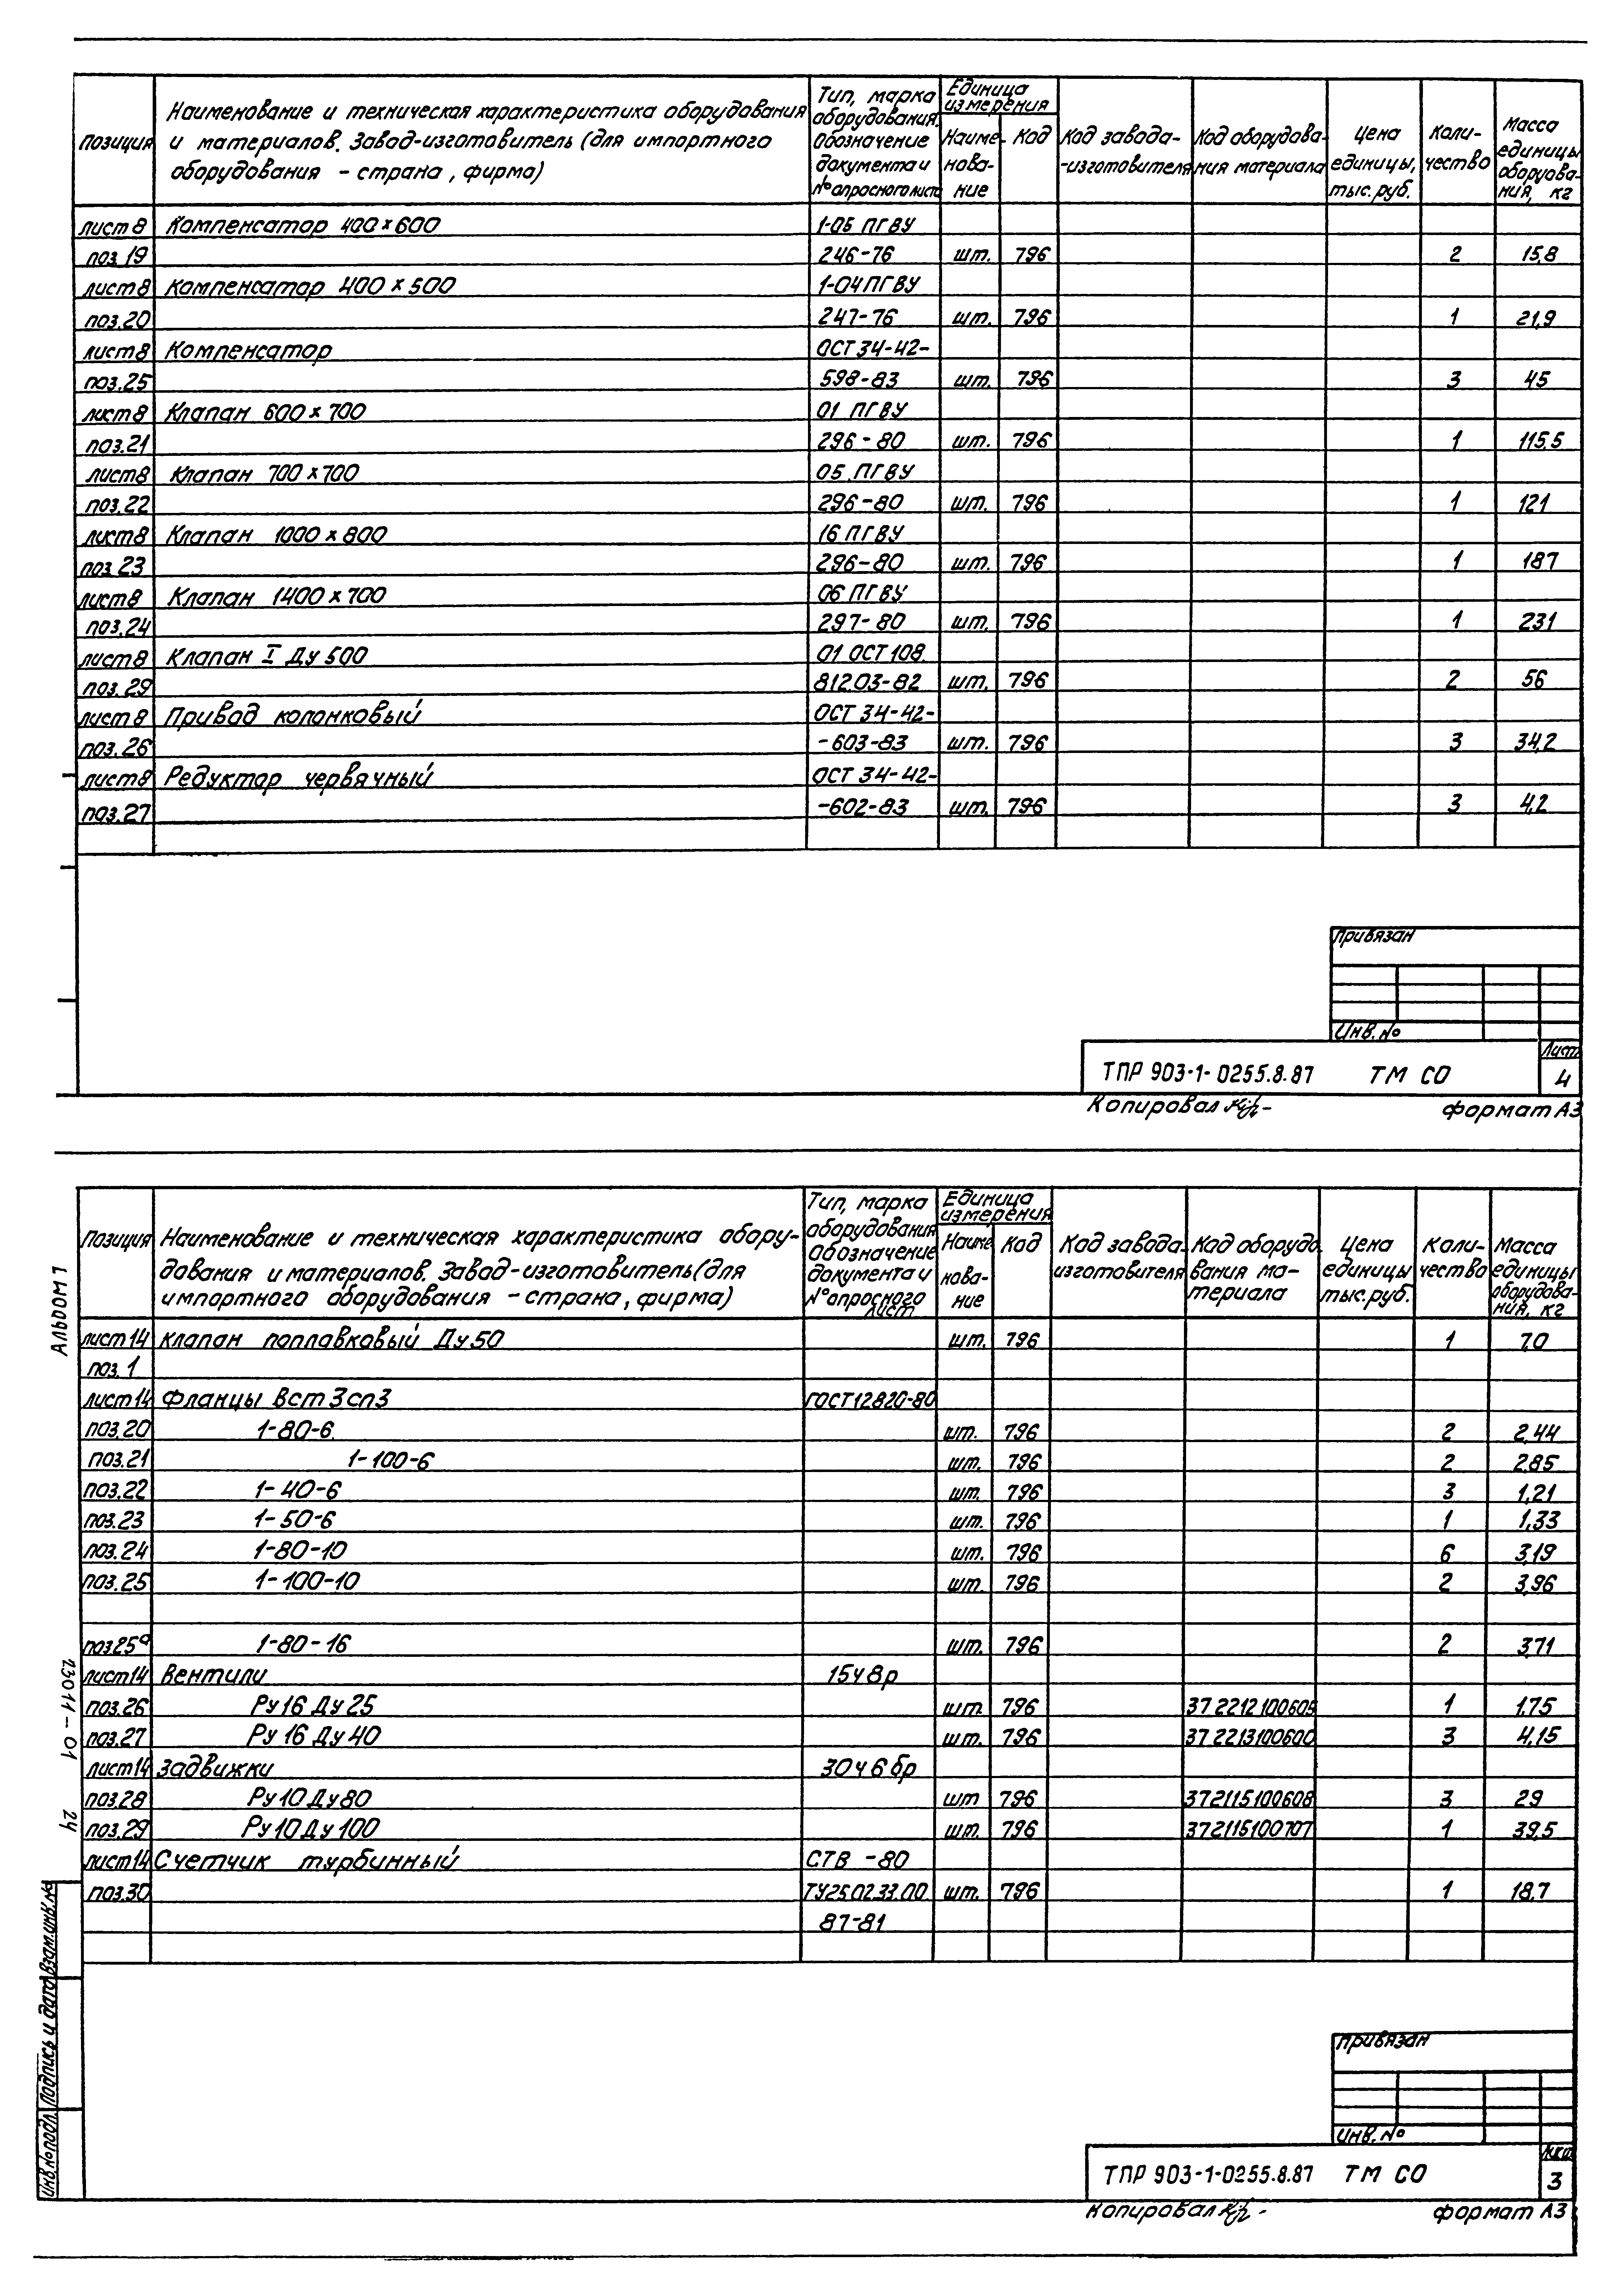 Позиция
Наименование и техническая характеристика оборудования
и материалов. Завод-изготовитель (для импортного
оборудования - страна, фирма)
Тип, марка
оборудования.
Обозначение
документа и
№ опросного листа
Единица
измерения
Наиме-
нова-
ние
Код
Код завода-
-изготовителя
Код оборудова-
ния материала
Цена
единицы,
тыс. руб.
Коли-
чество
Масса
единицы
оборудова-
ния, кг
лист 8 Компенсатор 400×600 1-05 ПГВУ
поз. 19 246-76 шт. 796 2 15,8
лист 8 Компенсатор 400×500 1-04 ПГВУ
поз. 20 247-76 шт. 796 1 21,9
лист 8 Компенсатор ОСТ 34-42-
поз. 25 598-83 шт. 796 3 45
лист 8 Клапан 600×700 01 ПГВУ
поз. 21 296-80 шт. 796 1 115,5
лист 8 Клапан 700×700 05 ПГВУ
поз. 22 296-80 шт. 796 1 121
лист 8 Клапан 1000×800 16 ПГВУ
поз. 23 296-80 шт. 796 1 187
лист 8 Клапан 1400×700 06 ПГВУ
поз. 24 297-80 шт. 796 1 231
лист 8 Клапан I Ду 500 01 ОСТ 108.
поз. 29 812.03-82 шт. 796 2 56
лист 8 Привод колонковый ОСТ 34-42-
поз. 26 -603-83 шт. 796 3 34,2
лист 8 Редуктор червячный ОСТ 34-42-
поз. 27 -602-83 шт. 796 3 4,2
Привязан
Инв. №
ТПР 903-1-0255.8.87 ТМ СО
Лист
4
Копировал
формат А3
Позиция
Наименование и техническая характеристика обору-
дования и материалов. Завод-изготовитель (для
импортного оборудования - страна, фирма)
Тип, марка
оборудования
Обозначение
документа и
№ опросного
лист
Единица
измерения
Наиме
нова-
ние
Код
Код завода-
изготовителя
Код оборудо
вания ма-
териала
Цена
единицы
тыс. руб.
Коли-
чество
Масса
единицы
оборудова-
ния, кг
лист 14 клапан поплавковый Ду 50 шт. 796 1 7,0
поз. 1
лист 14 Фланцы Вст 3 сп3 ГОСТ 12820-80
поз. 20 1-80-6 шт. 796 2 2,44
поз. 21 1-100-6 шт. 796 2 2,85
поз. 22 1-40-6 шт. 796 3 1,21
поз. 23 1-50-6 шт. 796 1 1,33
поз. 24 1-80-10 шт. 796 6 3,19
поз. 25 1-100-10 шт. 796 2 3,96
поз. 25а 1-80-16 шт. 796 2 3,71
лист 14 Вентили 15ч8р
поз. 26 Ру 16 Ду 25 шт 796 37 2212 100605 1 1,75
поз. 27 Ру 16 Ду 40 шт. 796 37 2213100600 3 4,15
лист 14 Задвижки 30ч6бр
поз. 28 Ру 10 Ду 80 шт 796 372115100608 3 29
поз. 29 Ру 10 Ду 100 шт. 796 372115100707 1 39,5
лист 14 Счетчик турбинный СТВ -80
поз. 30 ТУ25.02.33.00 шт. 796 1 18,7
87-81
Альбом 1
23011-01 24
Взам. инв. №
Подпись и дата
Инв. № подл.
Привязан
Инв. №
ТПР 903-1-0255.8.87 ТМ СО
3
Копировал
формат А3